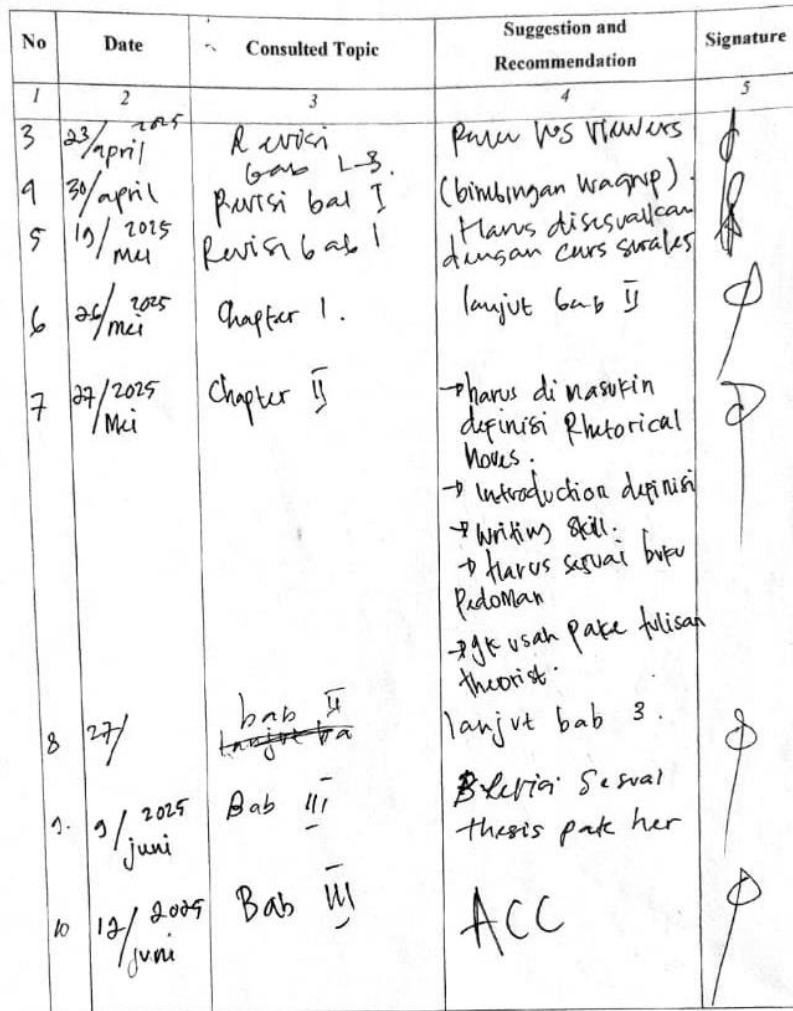 No Date Consulted Topic Suggestion and Recommendation Signature
1 2 3 4 5
3 23/april 2025 Revisi
bab 1-3.
4 30/april Revisi bab I (bimbingan
5 19/mei 2025 Revisi bab I Harus disesuaikan
dengan
6 26/mei 2025 Chapter 1. lanjut bab II
7 27/Mei 2025 Chapter II → harus dimasukin
definisi Rhetorical
Moves.
→ Introduction definisi
→ Writing skill.
→ Harus sesuai buku
Pedoman
→ gk usah pake tulisan
theorist.
8 27/ bab II lanjut bab 3.
9. 9/juni 2025 Bab III Revisi Sesuai
thesis
10 12/juni 2025 Bab III ACC